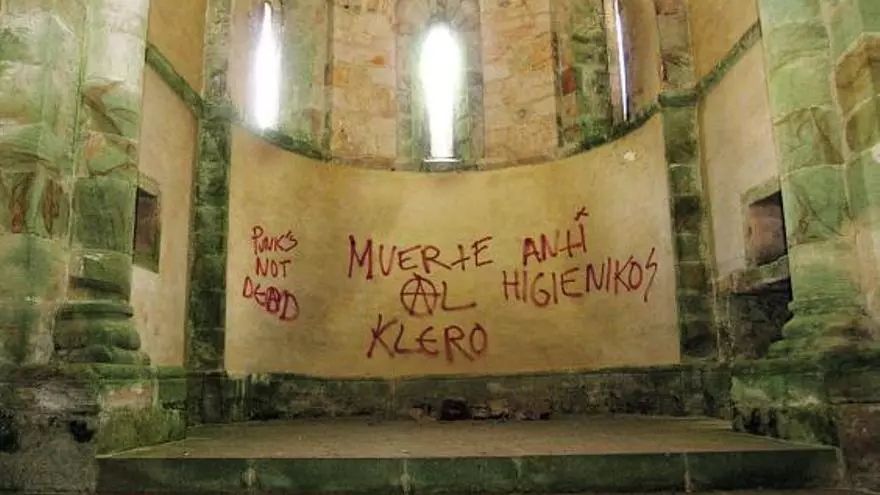 PUNK'S
NOT
DEAD
MUERTE
AL
KLERO
ANTI
HIGIENIKOS